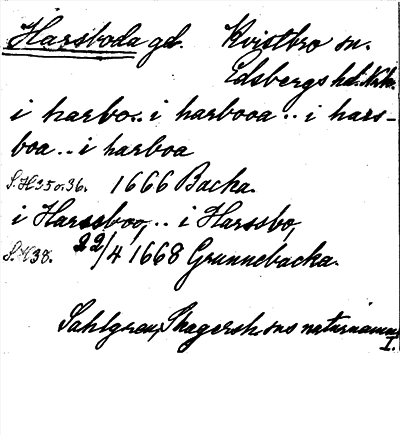 Harsboda gd. Kvistbro sn.
Edsbergs hd. Nrk.
i harbo.. i harbooa .. i hars-
boa .. i harboa
S. H35 o. 36. 1666 Backa.
i Harssboo, .. i Harssbo,
S. H38. 22/4 1668 Grunnebacka.
Sahlgren, Skagersh. sns naturnamn
I.